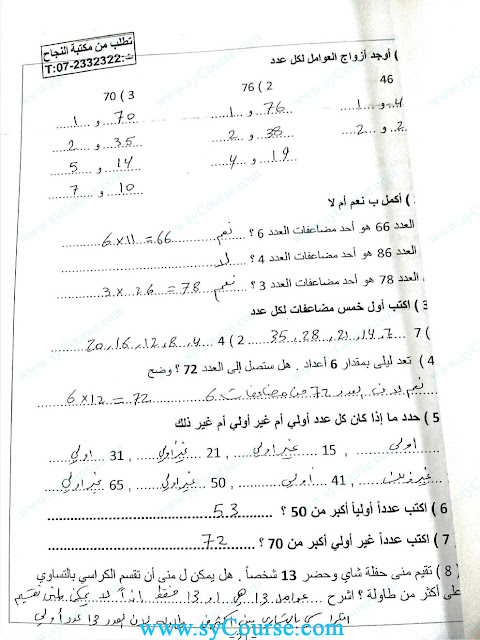 تطلب من مكتبة النجاح
ت:2332322-07:T
) أوجد أزواج العوامل لكل عدد
46
2 ) 76
3 ) 70
4 و 1
76 و 1
70 و 1
2 و 2
38 و 2
35 و 2
19 و 4
14 و 5
10 و 7
) أكمل ب نعم أم لا
العدد 66 هو أحد مضاعفات العدد 6 ؟ نعم 6 × 11 = 66
العدد 86 هو أحد مضاعفات العدد 4 ؟ لا
العدد 78 هو أحد مضاعفات العدد 3 ؟ نعم 3 × 26 = 78
3 ) اكتب أول خمس مضاعفات لكل عدد
7 ) 7 , 14 , 21 , 28 , 35 2 ) 4 4 , 8 , 12 , 16 , 20
4 ) تعد ليلى بمقدار 6 أعداد . هل ستصل إلى العدد 72 ؟ وضح
نعم لأن العدد 72 من مضاعفات 6 6 × 12 = 72
5 ) حدد ما إذا كان كل عدد أولي أم غير أولي أم غير ذلك
أولي , 15 غير أولي , 21 غير أولي , 31 أولي
غير ذلك , 41 أولي , 50 غير أولي , 65 غير أولي
6 ) اكتب عدداً أولياً أكبر من 50 ؟ 53
7 ) اكتب عدداً غير أولي أكبر من 70 ؟ 72
8 ) تقيم منى حفلة شاي وحضر 13 شخصاً . هل يمكن ل منى أن تقسم الكراسي بالتساوي
على أكثر من طاولة ؟ اشرح عوامل 13 هي 1 و 13 فقط إذاً لا يمكن تقسيم
الكراسي بالتساوي لأن العدد 13 عدد أولي
www.syCourse.com